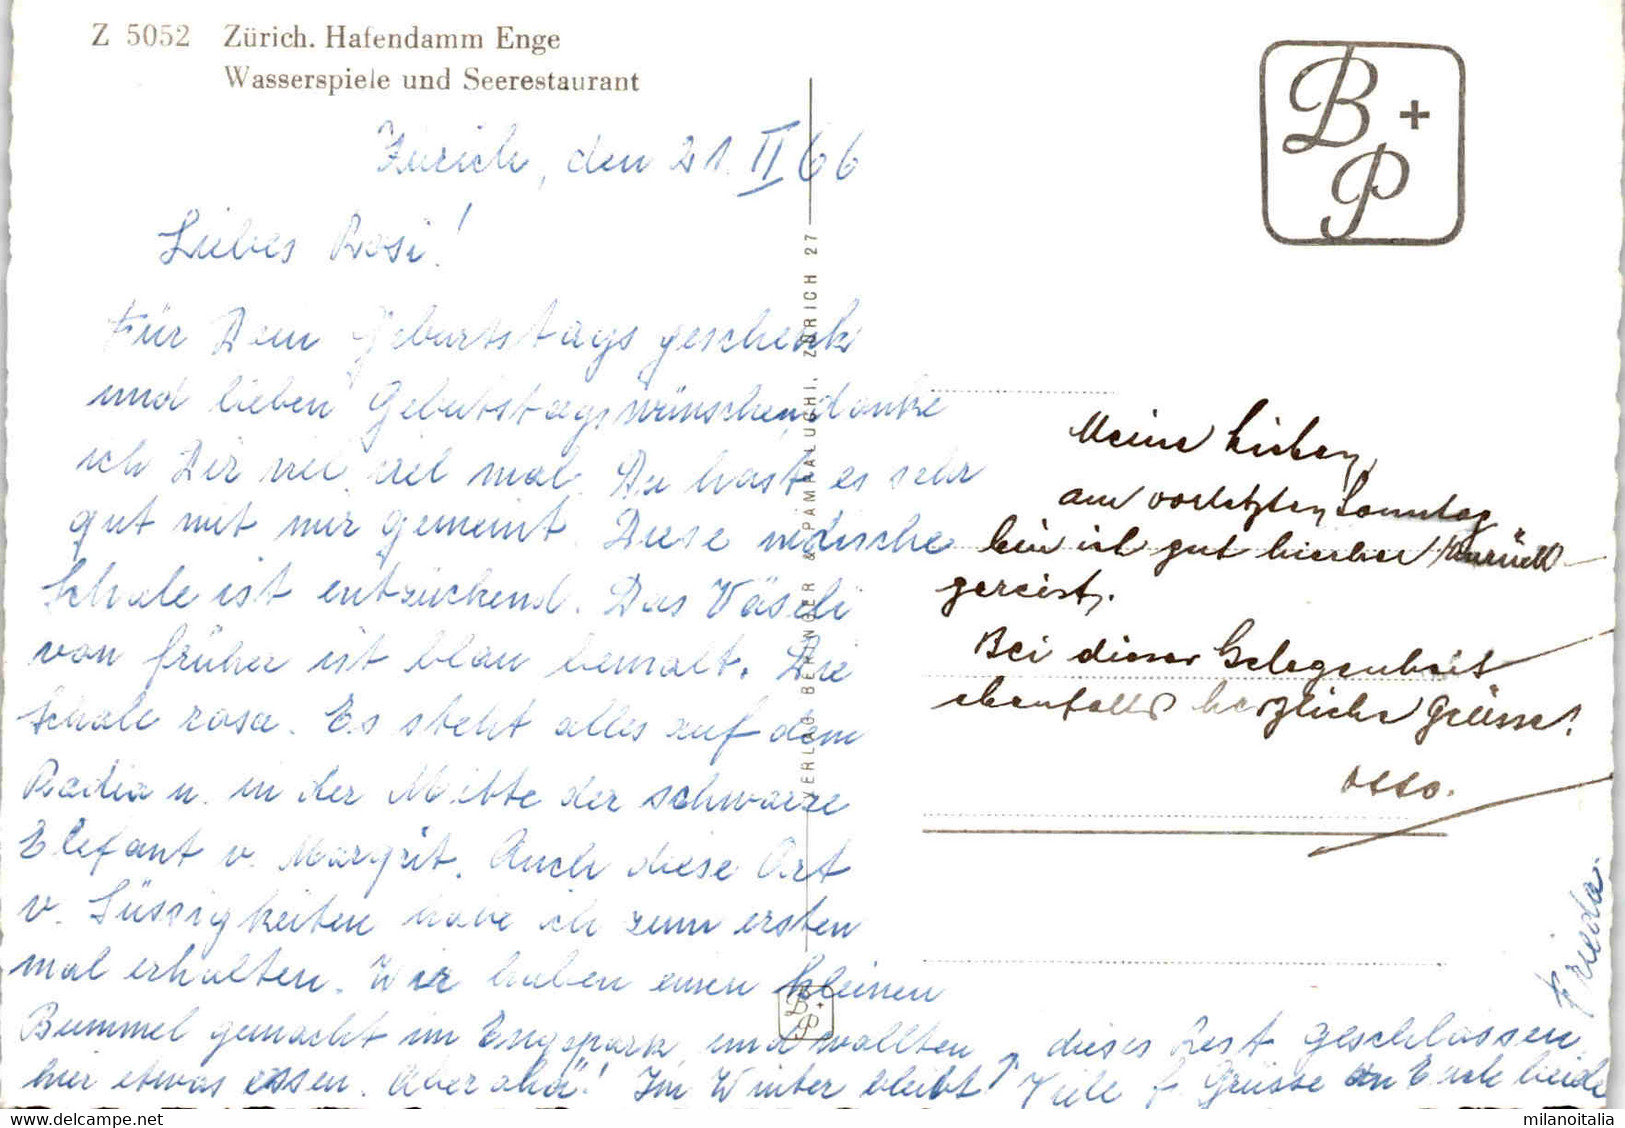 Z 5052 Zürich. Hafendamm Enge
Wasserspiele und Seerestaurant
Zürich, den 21. II 66
Liebes Rosi!
Für Dein Geburtstagsgeschenk
und lieben Geburtstagswünschen, danke
ich Dir viel, viel mal. Du hast es sehr
gut mit mir gemeint. Diese
Schale ist entzückend. Das Väseli
von früher ist blau bemalt. Die
Schale rosa. Es steht alles auf dem
Radio u. in der Mitte der schwarze
Elefant v. Margrit. Auch diese Art
v. Süssigkeiten habe ich zum ersten
mal erhalten. Wir haben einen kleinen
Bummel gemacht im Engepark, und wollten
hier etwas essen. Aber ohä! Im Winter bleibt
dieses Rest. geschlossen.
Viele Grüsse an Euch beide
Frieda
VERLAG BERINGER & PAMPALUCHI, ZÜRICH 27
B + P
B + P
Meine Lieben,
am vorletzten Sonntag
bin ich gut hierher zurück
gereist.
Bei dieser Gelegenheit
ebenfalls herzliche Grüsse!
Otto.
milanoitalia